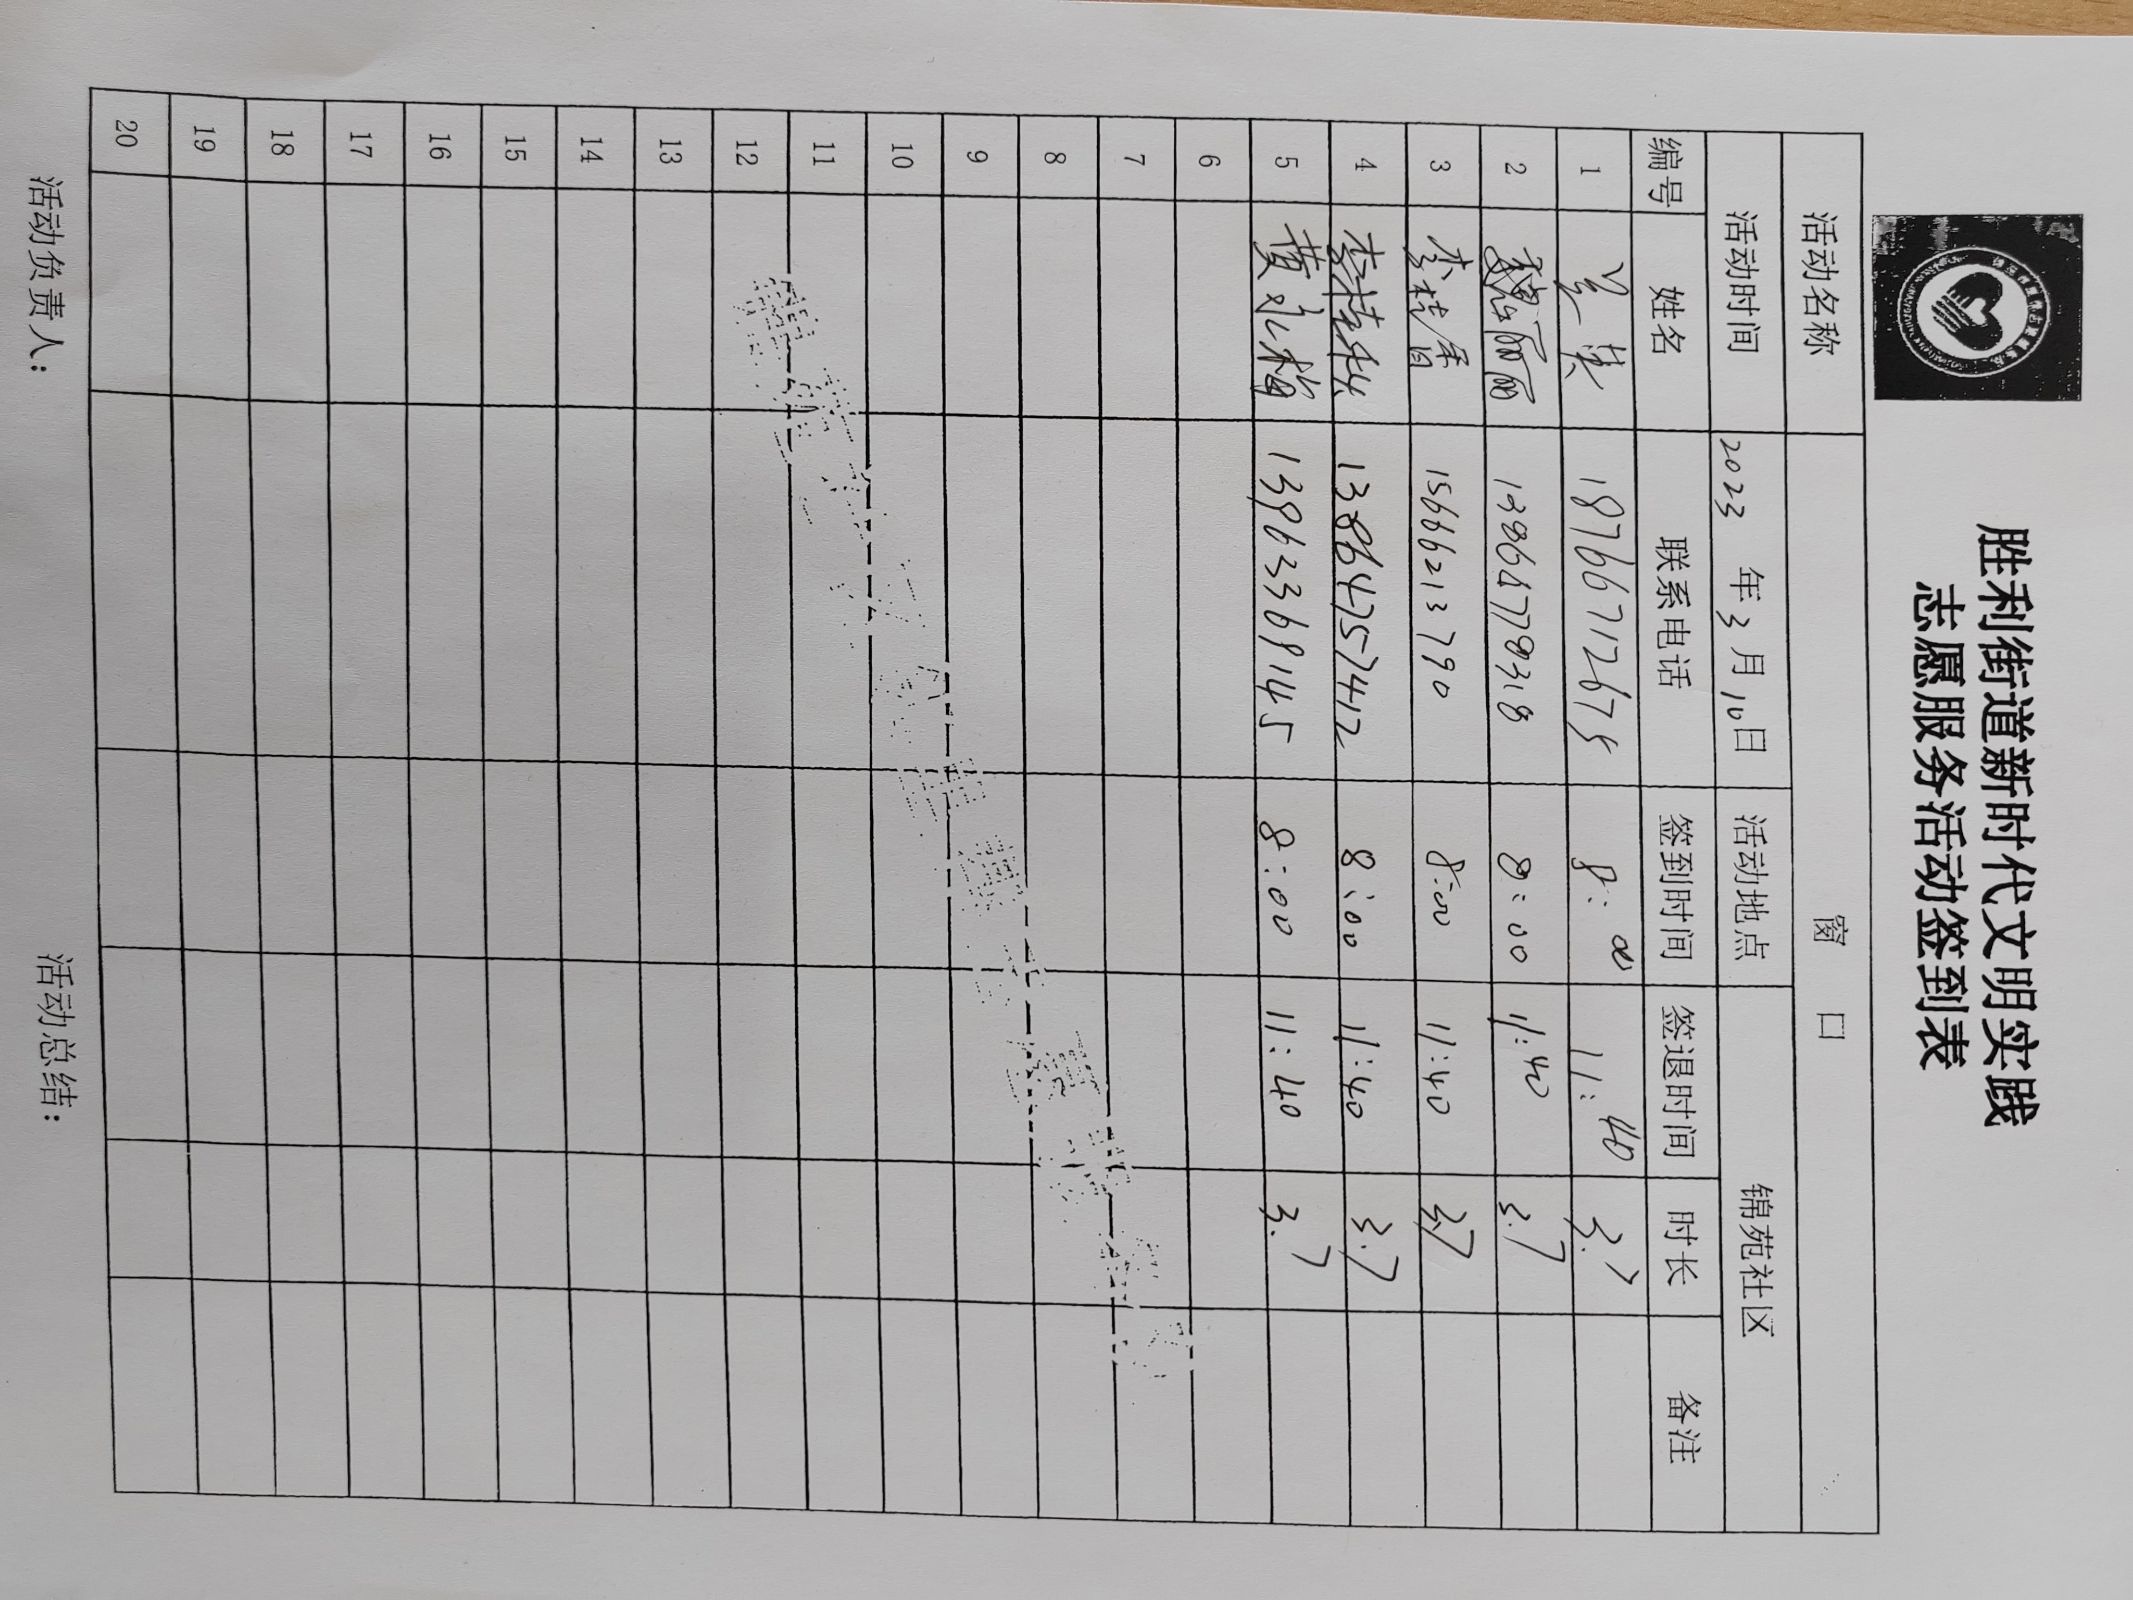 胜利街道新时代文明实践
志愿服务活动签到表
活动名称 窗口
活动时间 2023 年 3 月 10 日 活动地点 锦苑社区
编号 姓名 联系电话 签到时间 签退时间 时长 备注
1 18766712675 8:00 11:40 3.7
2 魏丽丽 8:00 11:40 3.7
3 李桂香 15666213790 8:00 11:40 3.7
4 13864757412 8:00 11:40 3.7
5 黄永梅 13963369145 8:00 11:40 3.7
6
7
8
9
10
11
12
13
14
15
16
17
18
19
20
活动负责人： 活动总结：